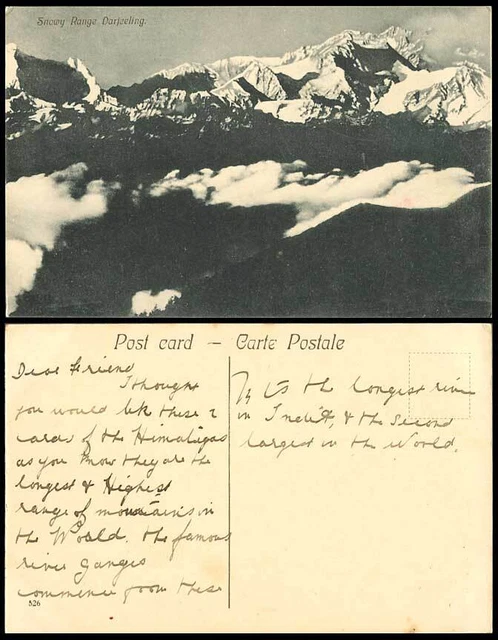 Snowy Range, Darjeeling.
Post card — Carte Postale
Dear Friend
I thought
you would lik these 2
cards of the Himaligas
as you know they are the
longest & Highest
range of mountains in
the World. the famous
river Ganges
commence from these
326
It is the longest river
in India, & the second
largest in the World.